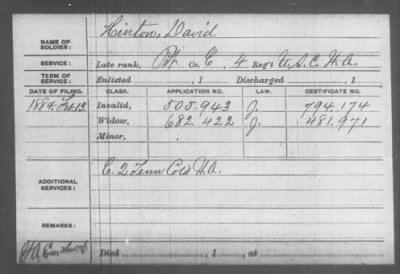 NAME OF SOLDIER: Hinton, David
SERVICE: Late rank, Pvt Co. C, 4 Reg't U.S.C.H.A.
TERM OF SERVICE: Enlisted , 1 Discharged , 1
DATE OF FILING. CLASS. APPLICATION NO. LAW. CERTIFICATE NO.
1884. Feb. 13 Invalid, 505.943 J. 794.174
Widow, 682.422 J. 481.971
Minor,
ADDITIONAL SERVICES: C. 2 Tenn Cold H.A.
REMARKS:
Died , 1 , at